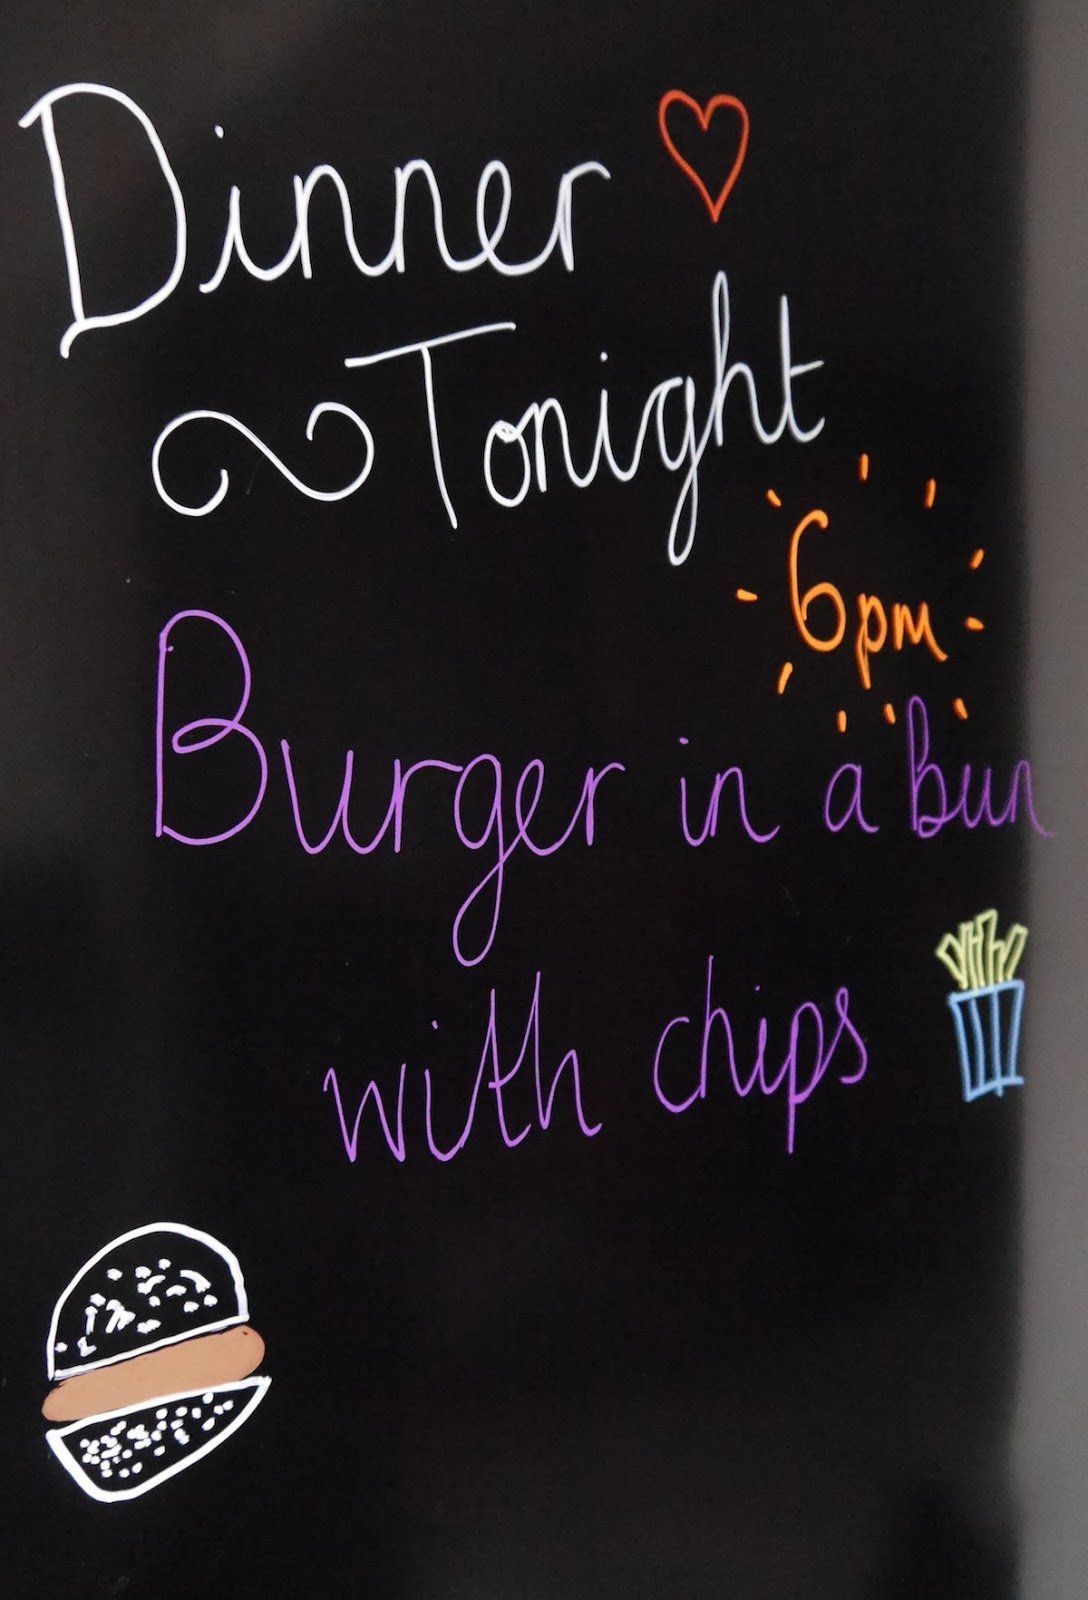 Dinner
Tonight
6pm
Burger in a Bun
with chips